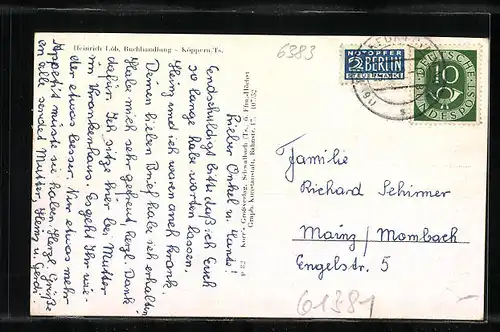 Heinrich Löb, Buchhandlung - Köppern/Ts.
6383
NOTOPFER
2 BERLIN
STEUERMARKE
DEUTSCHE
10
BUNDESPOST
Lieber Onkel u. Tante!
Endschuldigt bitte daß ich Euch
so lange habe warten lassen.
Heinz und ich waren auch krank.
Deinen lieben Brief habe ich erhalten
Habe mich sehr gefreut, herzl. Dank
dafür. Ich sitze hier bei Mutter
im Krankenhaus. Es geht Ihr wie-
der etwas besser. Nur etwas mehr
Appetit müsste sie haben. Herzl. Grüße
an alle sendet Mutter, Heinz u. Gerdi.
Schwalbach (Ts.)
Bahnstr.
Familie
Richard Schirmer
Mainz/Mombach
Engelstr. 5
61381